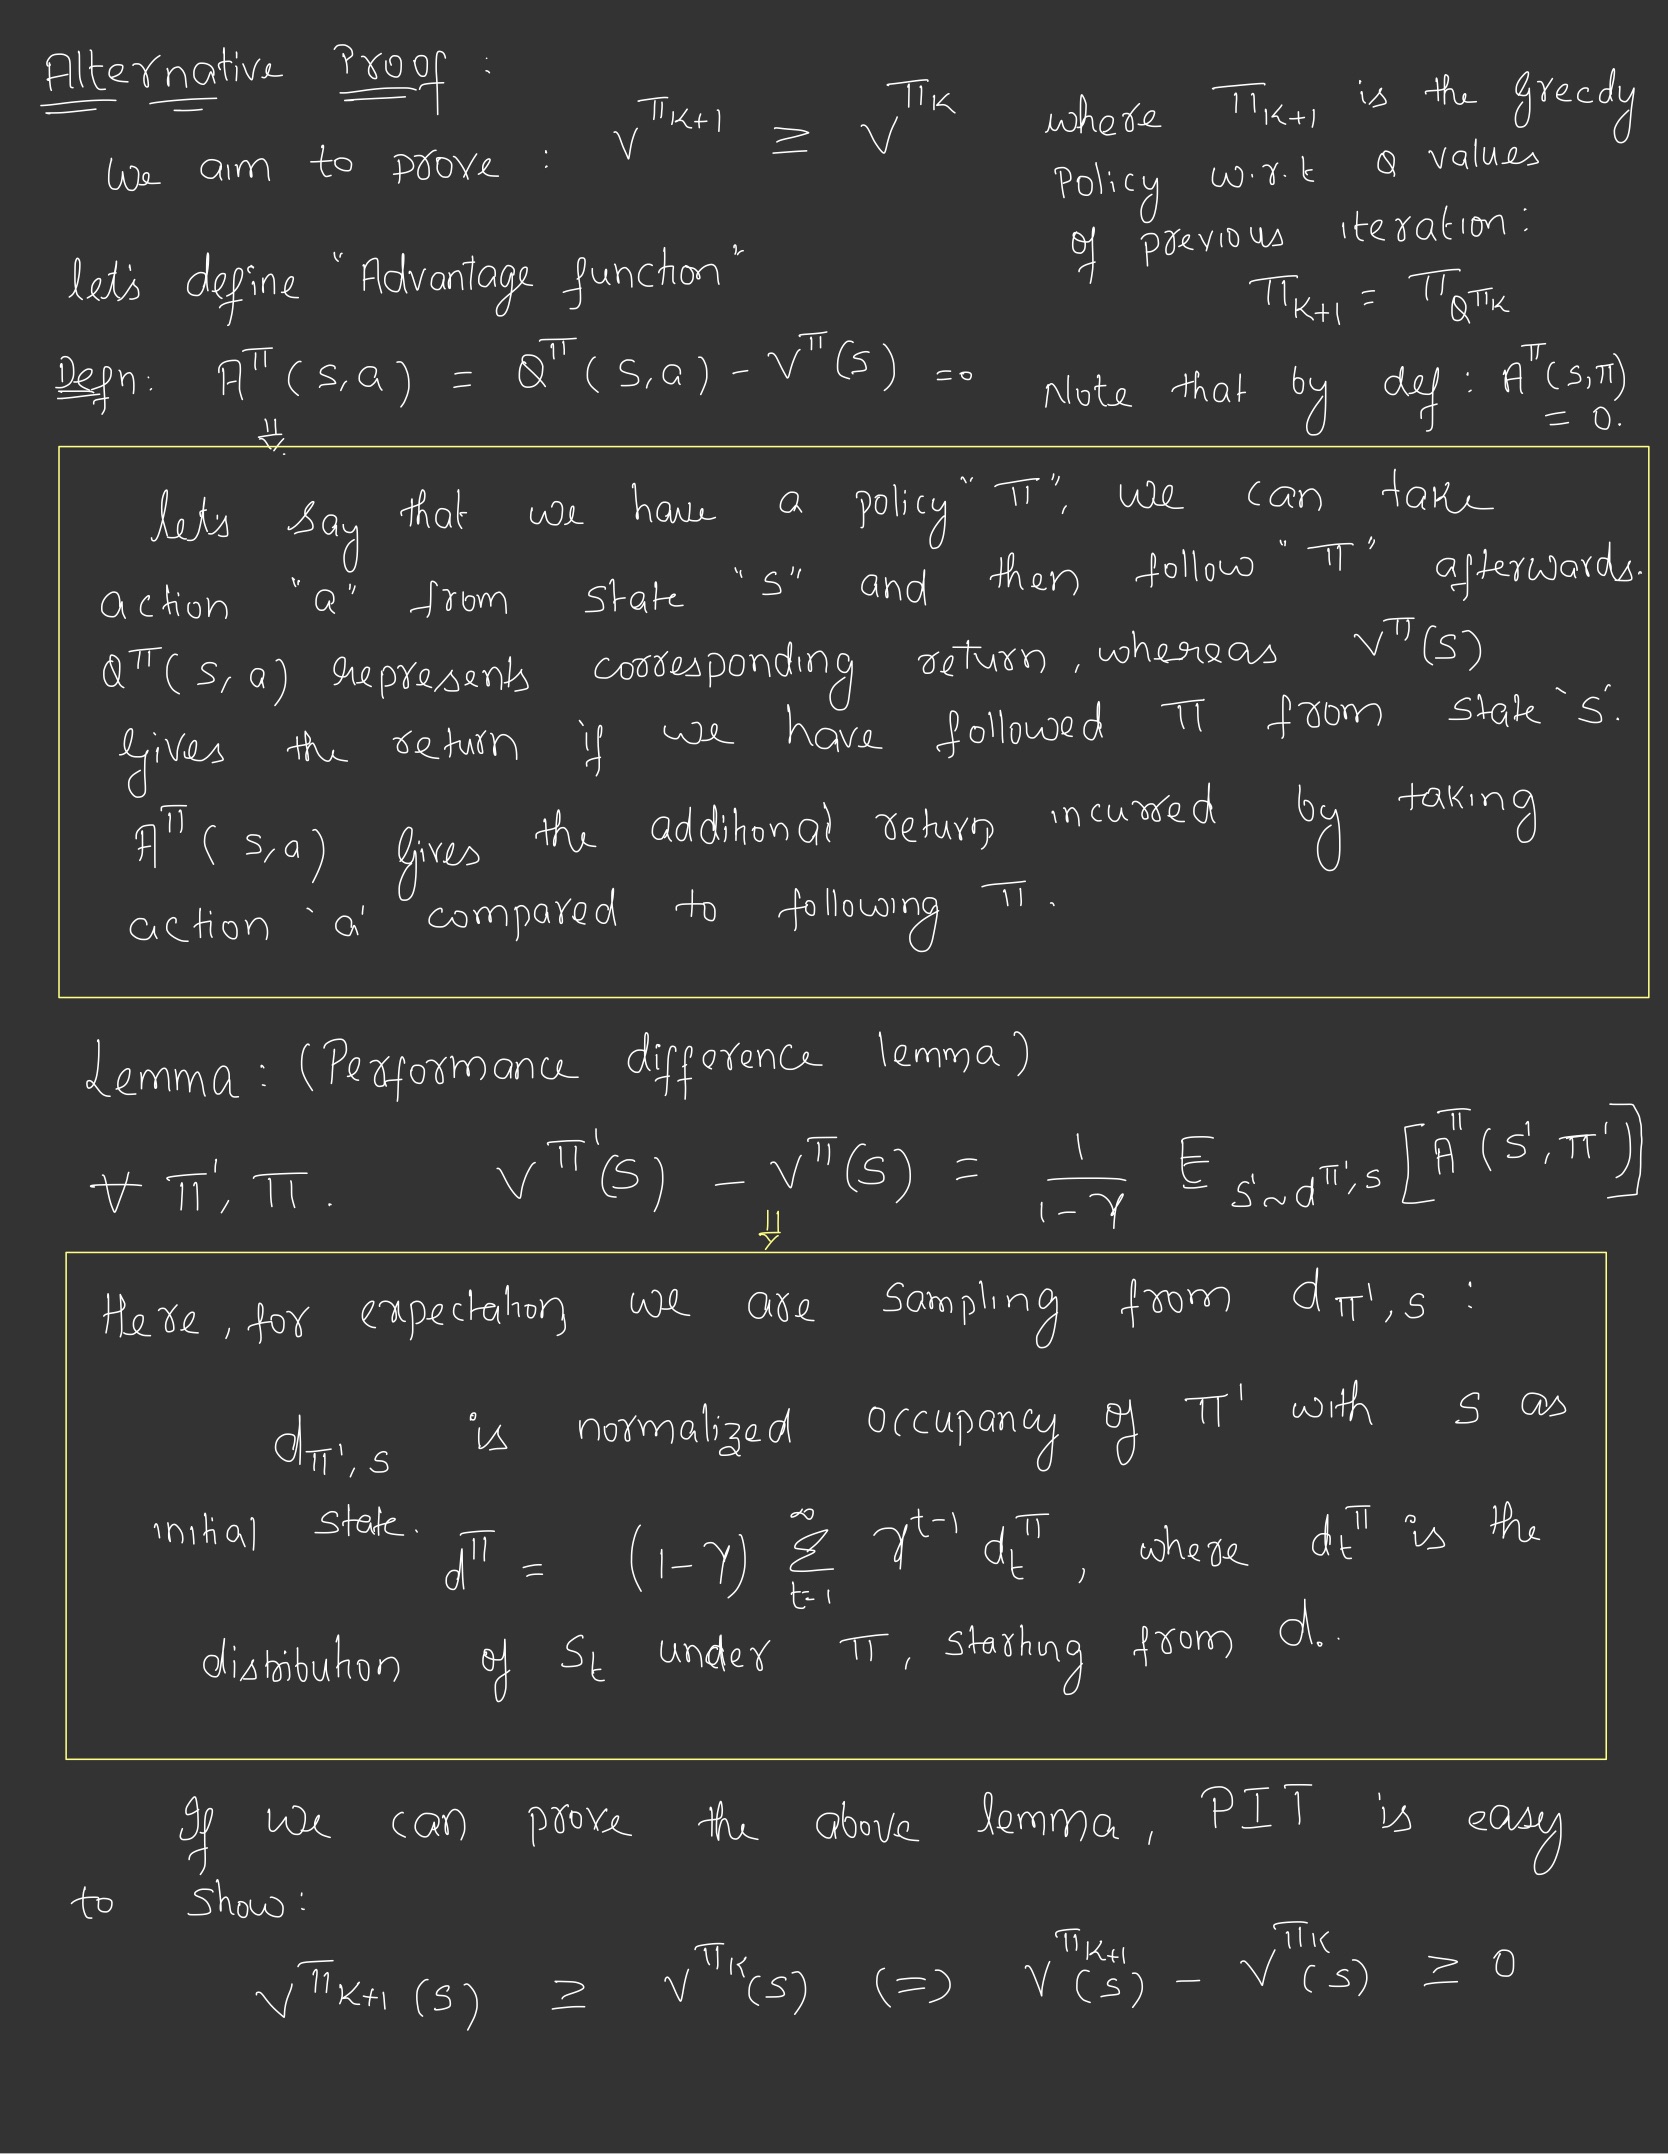 Alternative Proof :
We aim to prove : V^{π_{K+1}} ≥ V^{π_K} where π_{K+1} is the greedy
Policy w.r.t Q values
of previous iteration :
π_{K+1} = π_{Q^{π_K}}
let's define "Advantage function"
Defn: A^π(s,a) = Q^π(s,a) - V^π(s) =0 Note that by def : A^π(s,π)
= 0.
let's say that we have a policy "π", we can take
action "a" from state "s" and then follow "π" afterwards.
Q^π(s,a) represents corresponding return, whereas V^π(s)
gives the return if we have followed π from state 's'.
A^π(s,a) gives the additional return incurred by taking
action 'a' compared to following π.
Lemma : (Performance difference lemma)
∀ π', π. V^{π'}(s) - V^π(s) = \frac{1}{1-γ} E_{s'~d^{π',s}} [A^π(s',π')]
Here, for expectation, we are sampling from d_{π',s} :
d_{π',s} is normalized occupancy of π' with s as
initial state.
d^π = (1-γ) Σ_{t=1}^{∞} γ^{t-1} d_t^π, where d_t^π is the
distribution of s_t under π, starting from d₀.
If we can prove the above lemma, PIT is easy
to show:
V^{π_{K+1}}(s) ≥ V^{π_K}(s) (=) V^{π_{K+1}}(s) - V^{π_K}(s) ≥ 0